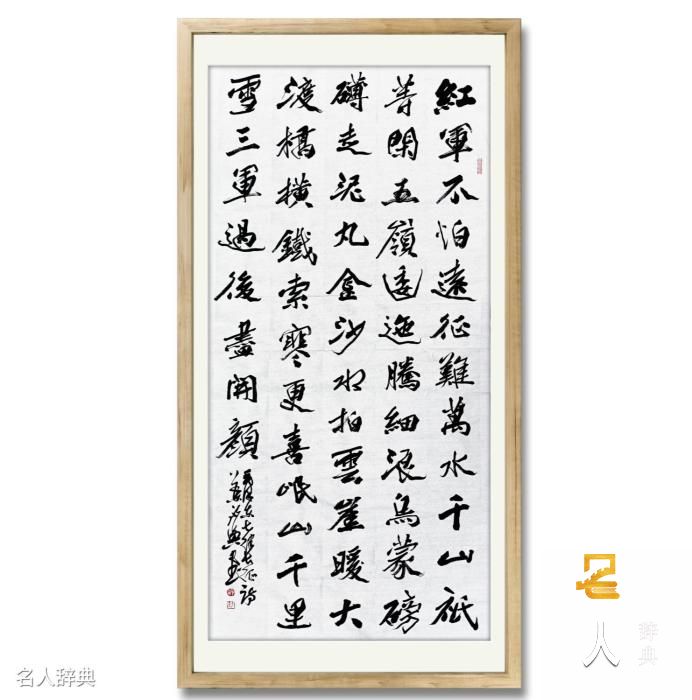 紅軍不怕遠征難萬水千山祇
等閑五嶺逶迤騰細浪烏蒙磅
礴走泥丸金沙水拍雲崖暖大
渡橋橫鐵索寒更喜岷山千里
雪三軍過後盡開顏
毛澤東七律長征詩
名人辞典
名人辞典